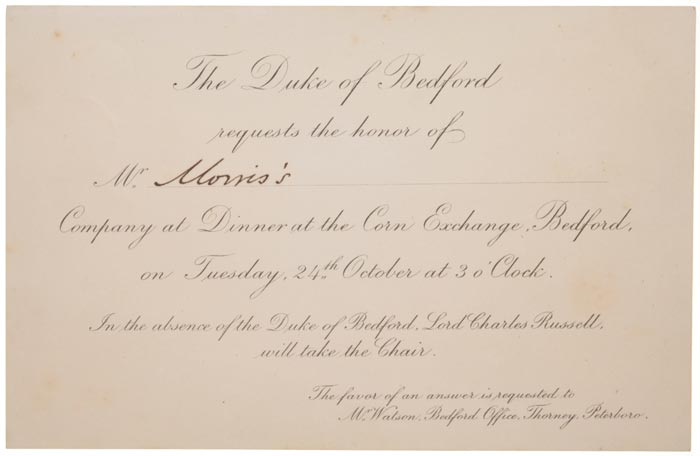 The Duke of Bedford
requests the honor of
Mr. Morris's
Company at Dinner at the Corn Exchange, Bedford,
on Tuesday, 24th October at 3 o'Clock.
In the absence of the Duke of Bedford, Lord Charles Russell,
will take the Chair.
The favor of an answer is requested to
Mr. Watson, Bedford Office, Thorney, Peterboro.